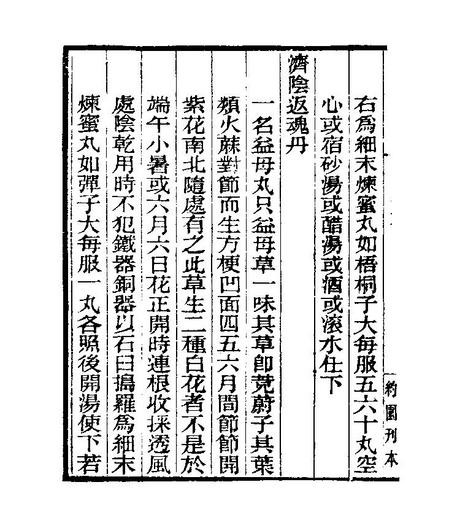 右爲細末煉蜜丸如梧桐子大每服五六十丸空
心或宿砂湯或醋湯或酒或滚水任下
濟陰返魂丹
一名益母丸只益母草一味其草卽茺蔚子其葉
類火蔴對節而生方梗凹面四五六月間節節開
紫花南北隨處有之此草生二種白花者不是於
端午小暑或六月六日花正開時連根收採透風
處陰乾用時不犯鐵器銅器以石臼搗羅爲細末
煉蜜丸如彈子大每服一丸各照後開湯使下若
約園刊本